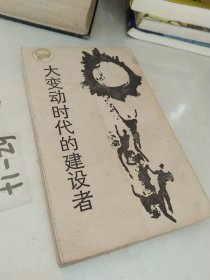 大变动时代的建设者